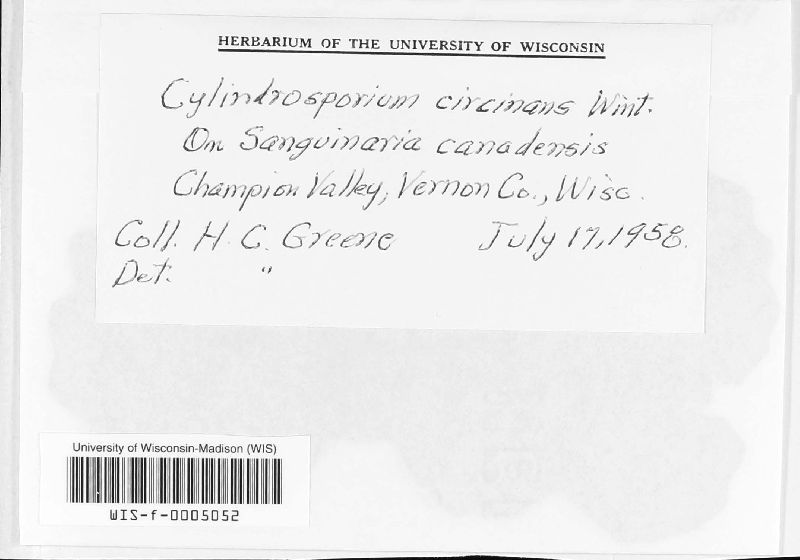 HERBARIUM OF THE UNIVERSITY OF WISCONSIN
Cylindrosporium circinans Wint.
On Sanguinaria canadensis
Champion Valley, Vernon Co., Wisc.
Coll. H. C. Greene July 17, 1958.
Det. "
University of Wisconsin-Madison (WIS)
WIS-f-0005052